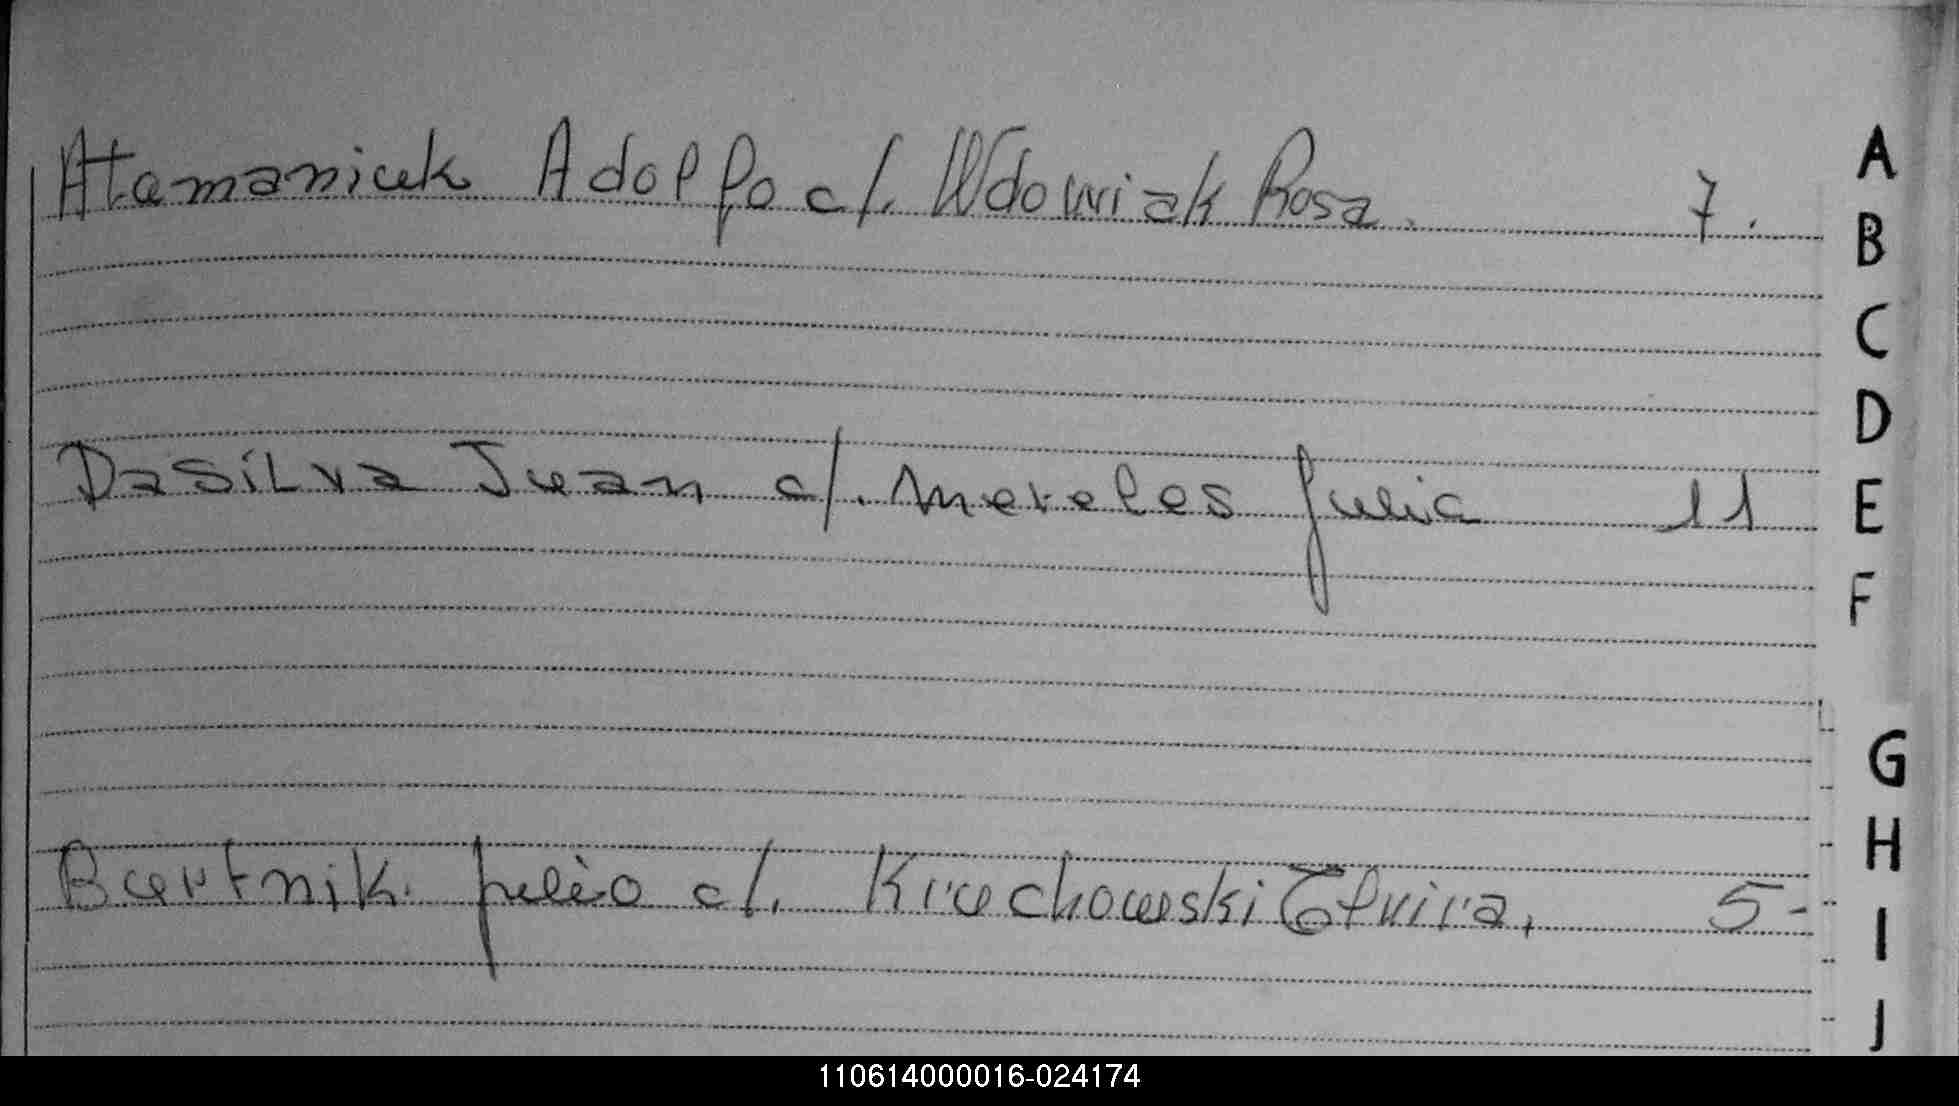 Atamaniuk Adolfo c/. Wdowiak Rosa. 7.
DaSilva Juan c/. Mereles Julia 11
Burtnik Julio c/. Kruchowski Elvira, 5-
A
B
C
D
E
F
G
H
I
J
110614000016-024174